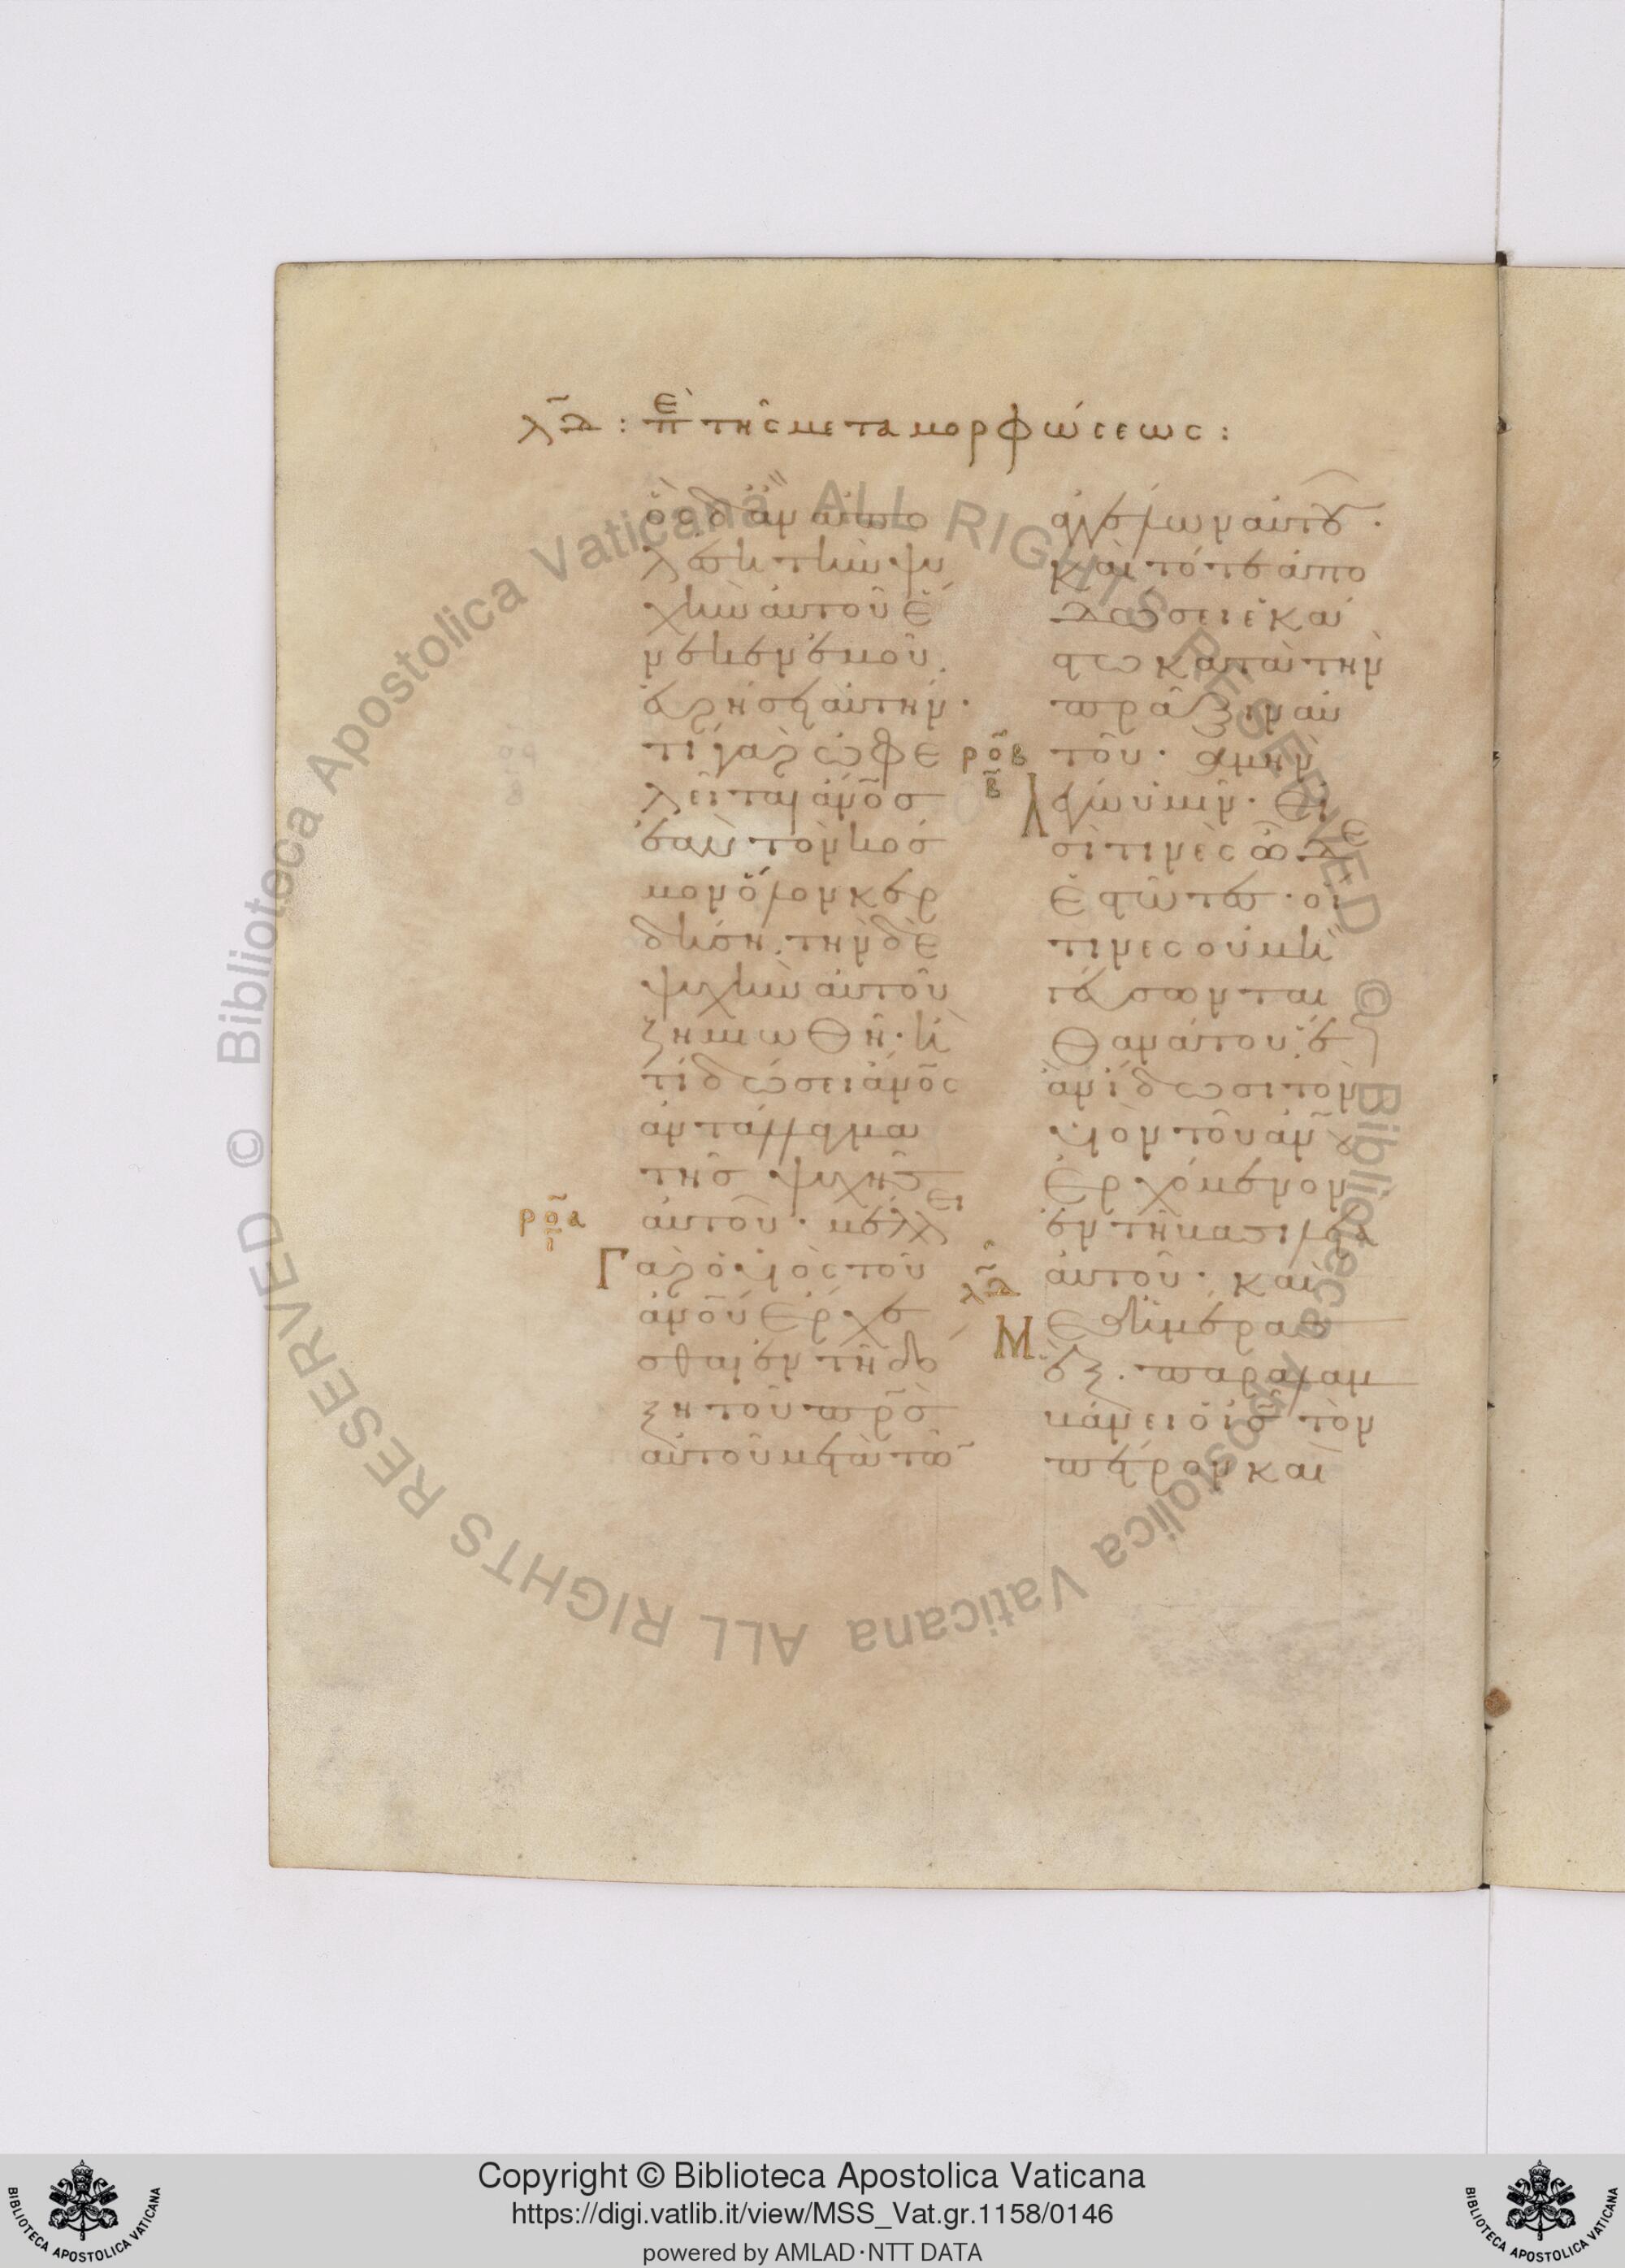 λδ̃ : πε τῆς μεταμορφώσεως :
ὃς δ' ἂν ἀπο
λέσῃ τὴν ψυ
χὴν αὐτοῦ ἕ
νεκεν ἐμοῦ,
εὑρήσει αὐτήν.
τί γὰρ ὠφε
λεῖται ἄνο̅σ
ἐὰν τὸν κόσ
μον ὅλον κερ
δήσῃ, τὴν δὲ
ψυχὴν αὐτοῦ
ζημιωθῆ. ἢ
τί δώσει ἄνο̅ς
ἀντάλλαγμα
τῆσ ψυχῆς
ροα αὐτοῦ. μέλλει
ι
Γὰρ ὁ υἱὸς τοῦ
ἀνο̅υ ἔρχε
σθαι ἐν τῆ δό
ξη τοῦ πρ̅σ
αὐτοῦ μετὰ τῶ̅
ἀγγέλων αὐτοῦ.
καὶ τότε ἀπο
δώσει ἑκά
στω κατὰ τὴν
πρᾶξιν αὐ
ροβ τοῦ. ἀμὴν
β
Λέγω ὑμῖν. εἰ
σί τινὲς ὧδε
ἑστῶτες. οἵ
τινες οὐ μὴ
γεύσωνται
θανάτου, ἕως
ἂν ἴδωσι τὸν
υἱὸν τοῦ ἀν̅ου
ἐρχόμενον
ἐν τῆ βασιλεία
λδ̃ αὐτοῦ. καὶ
Μεθ' ἡμέρας
ἓξ. παραλαμ
βάνει ὁ ι̅σ τὸν
πέτρον καὶ
Copyright © Biblioteca Apostolica Vaticana
https://digi.vatlib.it/view/MSS_Vat.gr.1158/0146
powered by AMLAD·NTT DATA
© Biblioteca Apostolica Vaticana ALL RIGHTS RESERVED
© Biblioteca Apostolica Vaticana ALL RIGHTS RESERVED
BIBLIOTECA APOSTOLICA VATICANA
BIBLIOTECA APOSTOLICA VATICANA